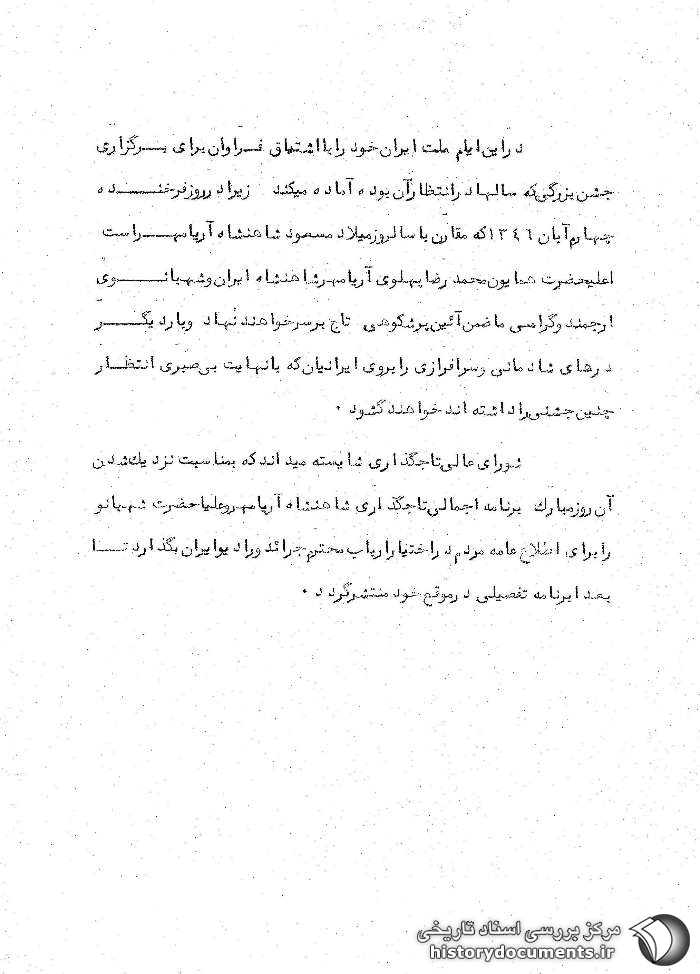 در این ایام ملت ایران خود را با اشتیاق فراوان برای برگزاری
جشن بزرگی که سالها در انتظار آن بوده آماده میکند زیرا در روز فرخنده
چهارم آبان ۱۳۴۶ که مقارن با سالروز میلاد مسعود شاهنشاه آریامهر است
اعلیحضرت همایون محمد رضا پهلوی آریامهر شاهنشاه ایران و شهبانوی
ارجمند و گرامی ما ضمن آئین پرشکوهی تاج بر سر خواهند نهاد و بار دیگر
درهای شادمانی و سرافرازی را بروی ایرانیان که با نهایت بی‌صبری انتظار
چنین جشنی را داشته اند خواهند گشود .
شورای عالی تاجگذاری شایسته میداند که بمناسبت نزدیك شدن
آن روز مبارك برنامه اجمالی تاجگذاری شاهنشاه آریامهر و علیاحضرت شهبانو
را برای اطلاع عامه مردم در اختیار ارباب محترم جرائد و رادیو ایران بگذارد تا
بعدا برنامه تفصیلی در موقع خود منتشر گردد .
مرکز بررسی اسناد تاریخی
historydocuments.ir